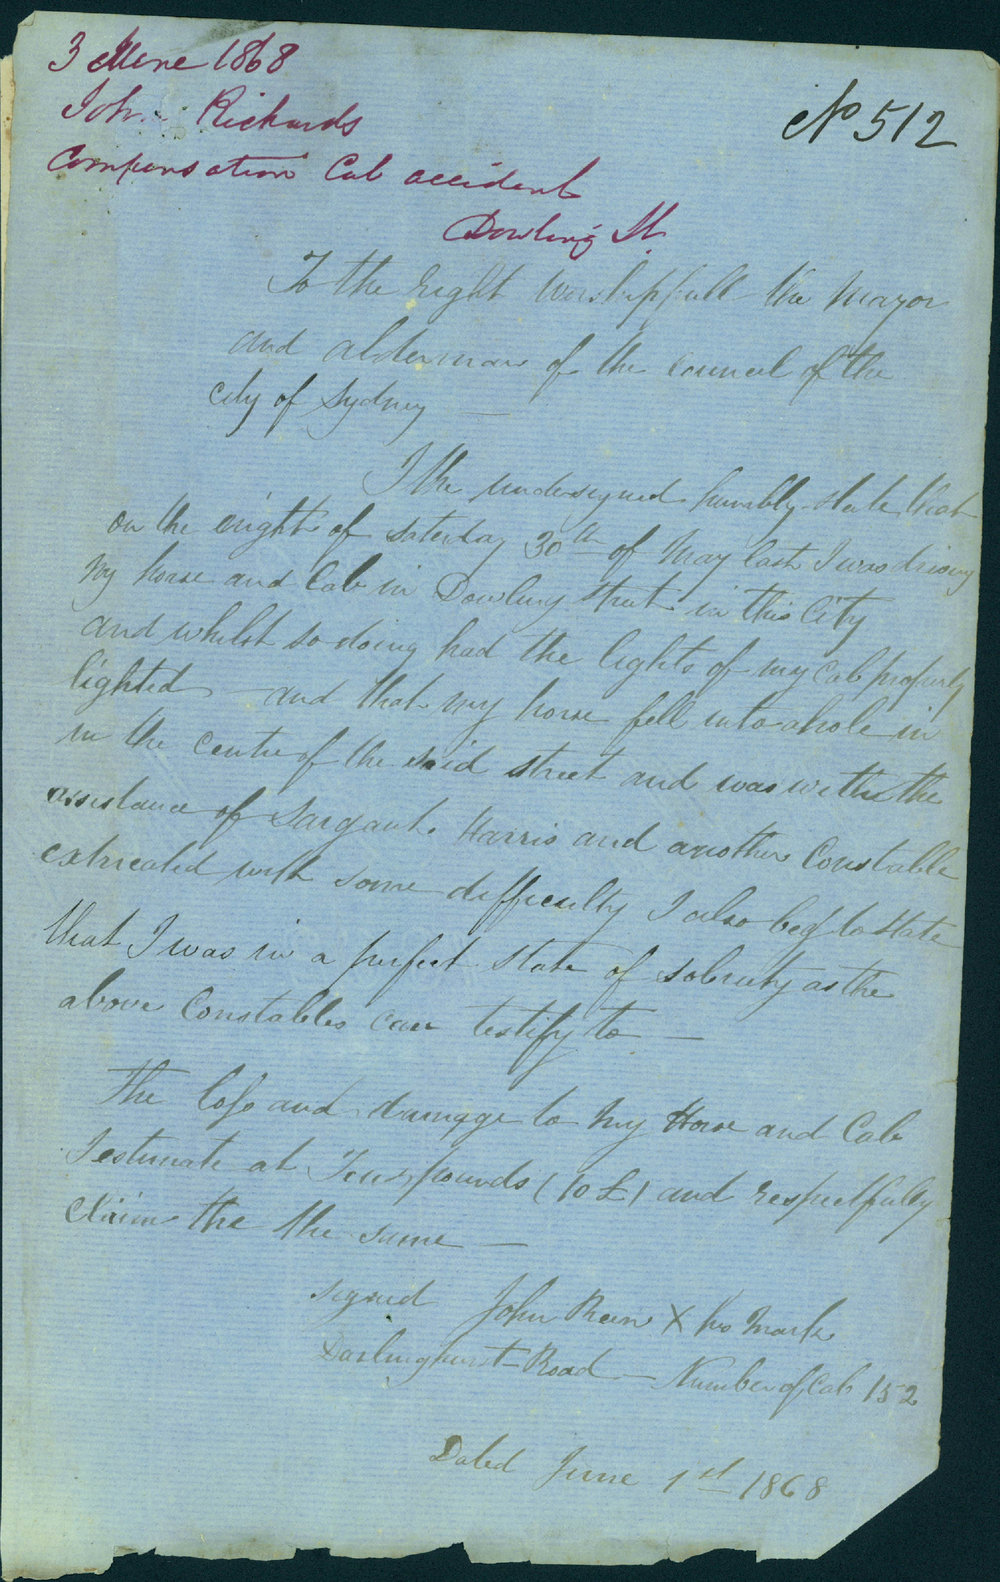 3 June 1868
John Richards
Compensation Cab accident
Dowling St.
No 512
To the right Worshipfull the Mayor
and alderman of the Council of the
City of Sydney —
I the undersigned humbly state that
on the night of Saterday 30th of May last I was driving
my horse and Cab in Dowling Street in this City
and whilst so doing had the lights of my Cab properly
lighted and that my horse fell into a hole in
in the centre of the said street and was with the
assistance of Sargant Harris and another Constable
extricated with some difficulty I also beg to state
that I was in a perfect state of sobriety as the
above Constables can testify to —
The loss and damage to my Horse and Cab
I estimate at Ten pounds (10 £) and respectfully
Claim the the same —
signed John X his Mark
Darlinghurst Road – Number of Cab 152
Dated June 1st 1868